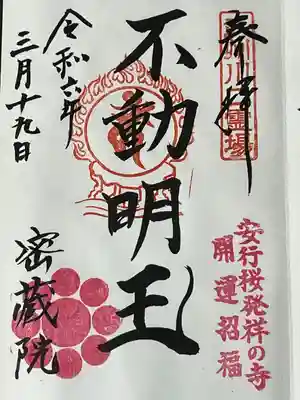 奉拝
川霊場
不動明王
令和六年
三月十九日
密蔵院
安行桜発祥の寺
開運招福